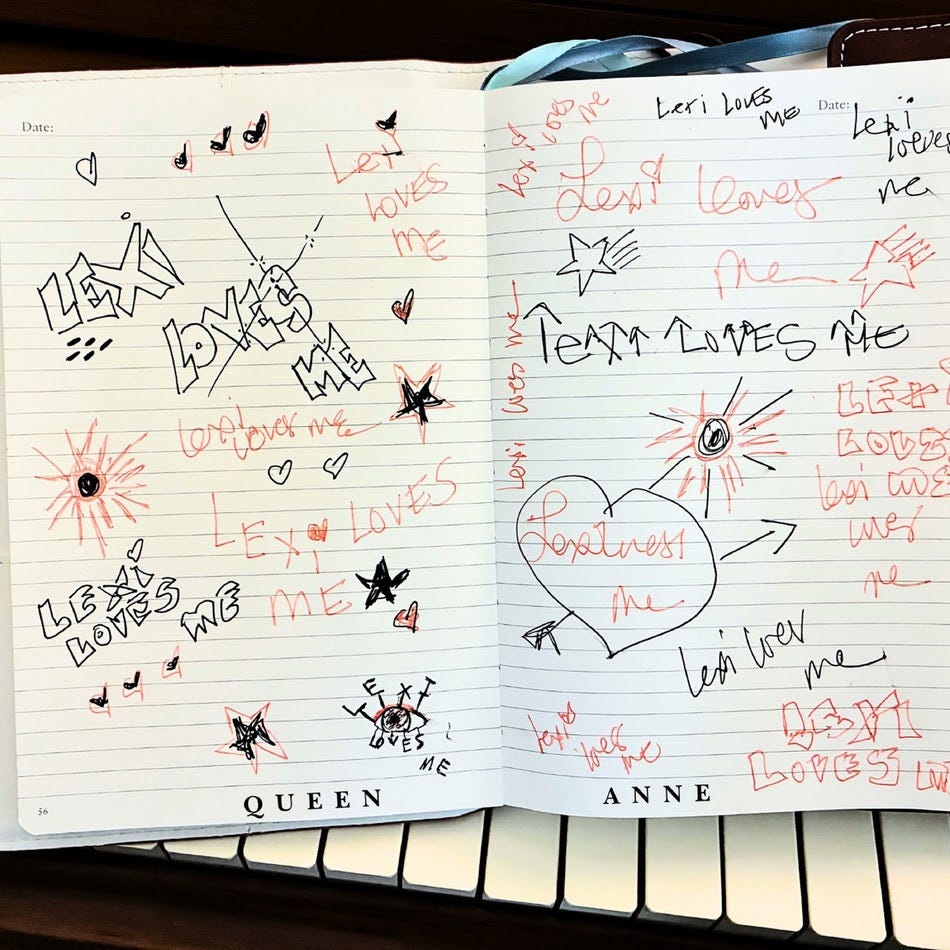 Date:
Lexi
LOVES
ME
LEXI
LOVES
ME
Lexi loves me
LEXI LOVES
ME
LEXI
LOVES ME
LEXI
LOVES
ME
56
QUEEN
Lexi loves me
Lexi LOVES
ME
Date:
Lexi
loeves
me
Lexi loves
me
LEXI LOVES ME
Lexi loves me
LEXI
LOVES
lexi
me
me
Lexi lover
me
Lexi
loves
me
LEXI
LOVES
ANNE